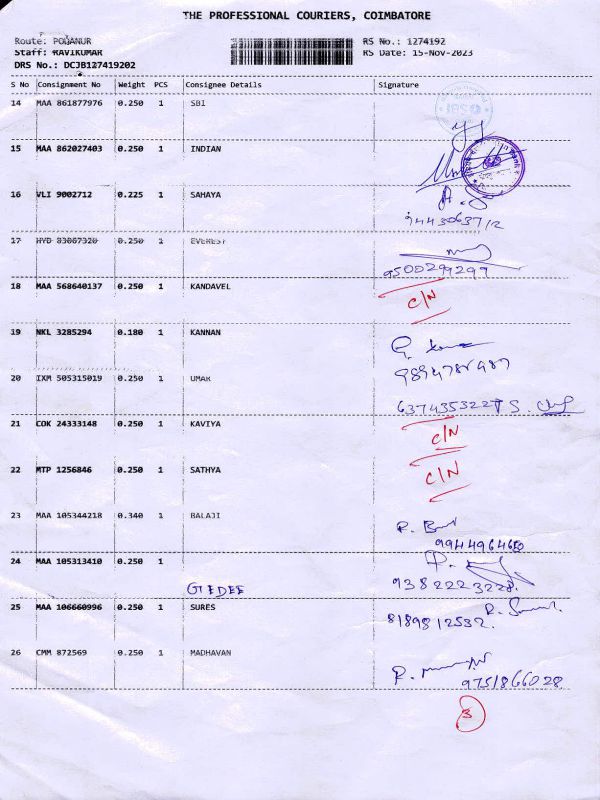 THE PROFESSIONAL COURIERS, COIMBATORE
Route: PODANUR RS No.: 1274192
Staff: RAVIKUMAR RS Date: 15-Nov-2023
DRS No.: DCJB127419202
S No Consignment No Weight PCS Consignee Details Signature
14 MAA 861877976 0.250 1 SBI
15 MAA 862027403 0.250 1 INDIAN
16 VLI 9002712 0.225 1 SAHAYA
9443063712
17 HYD 83067320 0.250 1 EVEREST
9500299299
18 MAA 568640137 0.250 1 KANDAVEL C/N
19 NKL 3285294 0.180 1 KANNAN
20 IXM 505315019 0.250 1 UMAR
21 COK 24333148 0.250 1 KAVIYA C/N
22 MTP 1256846 0.250 1 SATHYA C/N
23 MAA 105344218 0.340 1 BALAJI
24 MAA 105313410 0.250 1
GEDEE 9382223228.
25 MAA 106660996 0.250 1 SURES
8189812532.
26 CMM 872569 0.250 1 MADHAVAN
9751866028
3